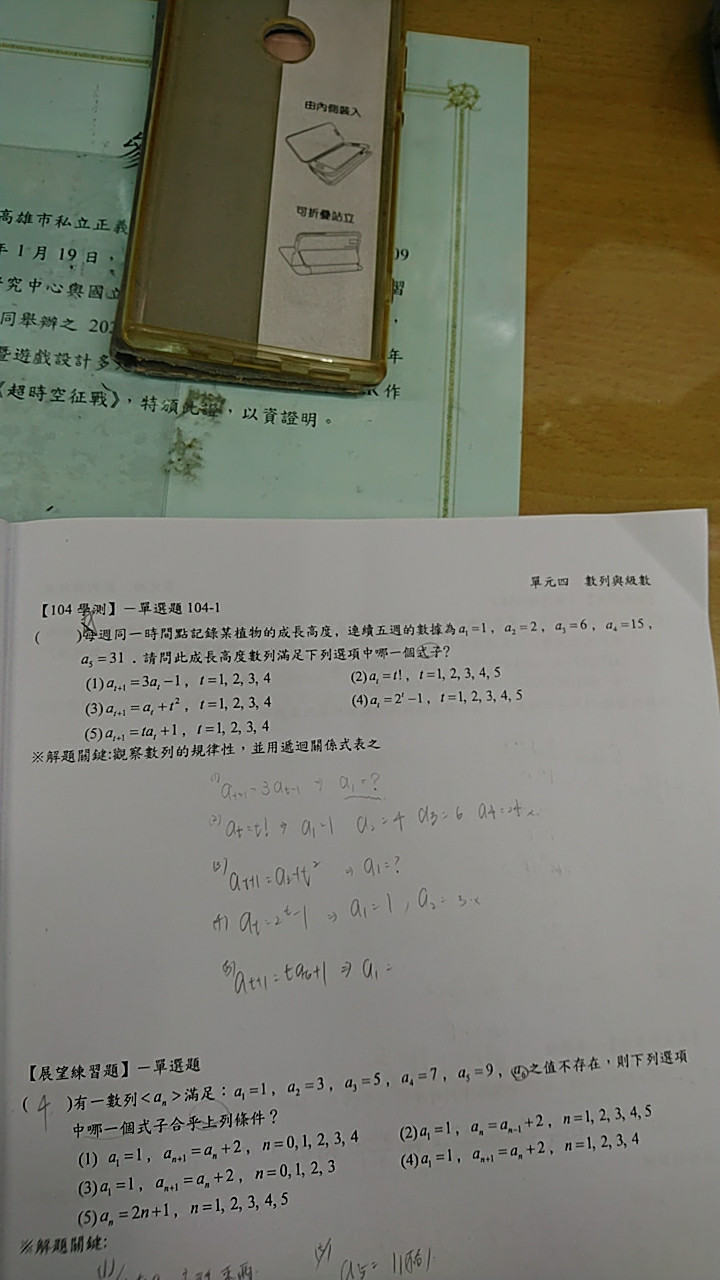 由內側裝入
可折疊站立
高雄市私立正義
年1月19日,
09
究中心與國立
習
同舉辦之 202
,
暨遊戲設計多
年
《超時空征戰》,特頒此證,以資證明。
作
單元四 數列與級數
【104 學測】-單選題 104-1
( )每週同一時間點記錄某植物的成長高度,連續五週的數據為 a₁=1, a₂=2, a₃=6, a₄=15,
a₅=31.請問此成長高度數列滿足下列選項中哪一個式子?
(1) aₜ₊₁=3aₜ-1, t=1, 2, 3, 4 (2) aₜ=t!, t=1, 2, 3, 4, 5
(3) aₜ₊₁=aₜ+t², t=1, 2, 3, 4 (4) aₜ=2ᵗ-1, t=1, 2, 3, 4, 5
(5) aₜ₊₁=taₜ+1, t=1, 2, 3, 4
※解題關鍵:觀察數列的規律性,並用遞迴關係式表之
(1) aₜ₊₁=3aₜ-1 ⇒ a₁=?
(2) aₜ=t! ⇒ a₁=1 a₂=4 a₃=6 a₄=24 ×
(3) aₜ₊₁=aₜ+t² ⇒ a₁=?
(4) aₜ=2ᵗ-1 ⇒ a₁=1, a₂=3 ×
(5) aₜ₊₁=taₜ+1 ⇒ a₁=
【展望練習題】-單選題
( 4 )有一數列<aₙ>滿足:a₁=1, a₂=3, a₃=5, a₄=7, a₅=9, a₆之值不存在,則下列選項
中哪一個式子合乎上列條件?
(1) a₁=1, aₙ₊₁=aₙ+2, n=0, 1, 2, 3, 4 (2) a₁=1, aₙ=aₙ₋₁+2, n=1, 2, 3, 4, 5
(3) a₁=1, aₙ₊₁=aₙ+2, n=0, 1, 2, 3 (4) a₁=1, aₙ₊₁=aₙ+2, n=1, 2, 3, 4
(5) aₙ=2n+1, n=1, 2, 3, 4, 5
※解題關鍵: